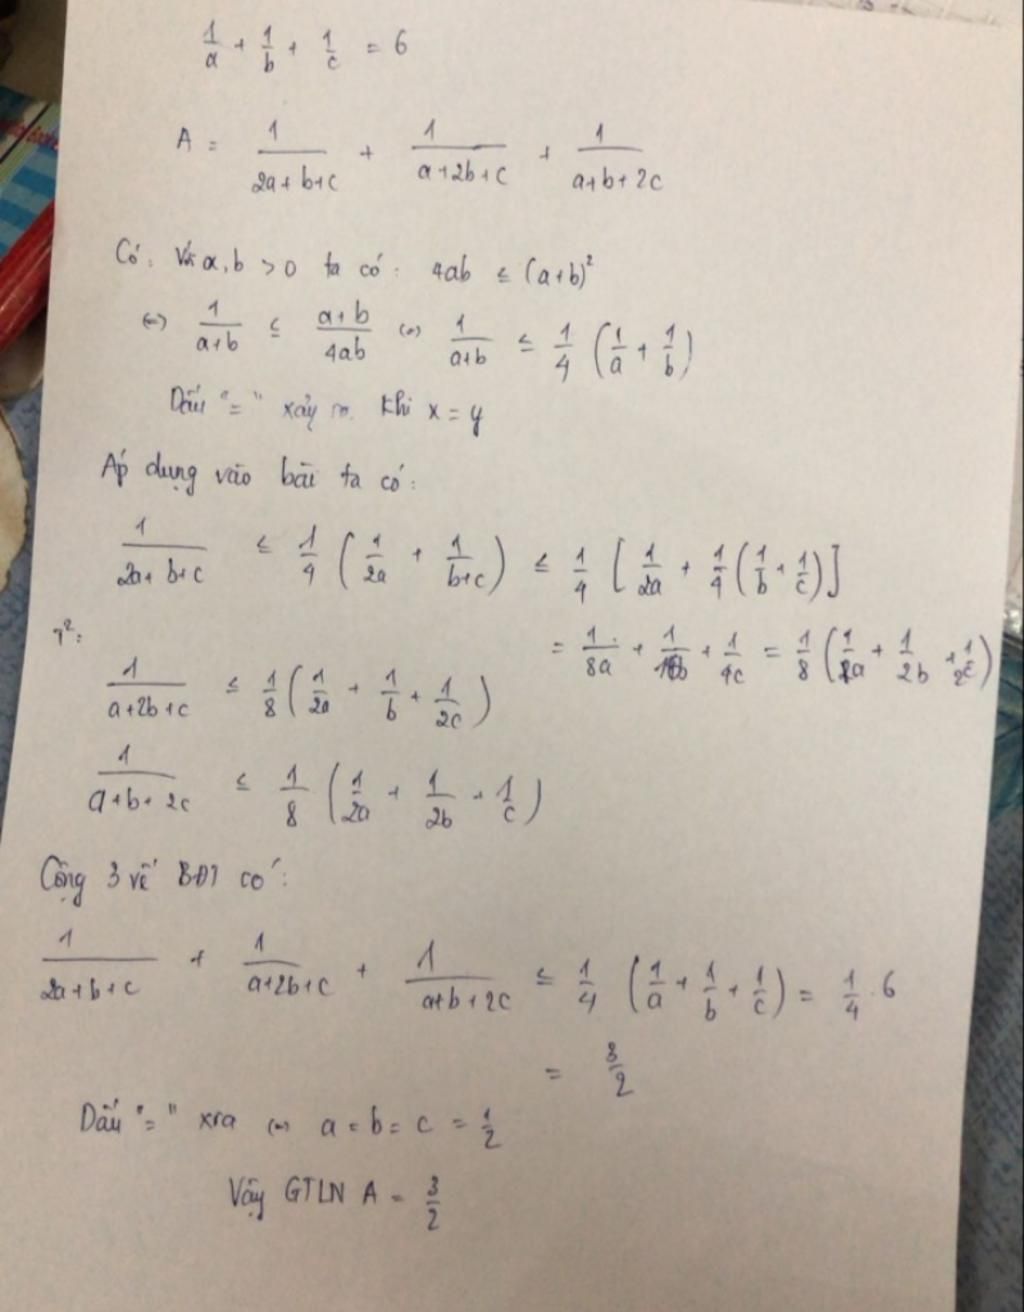 1/a + 1/b + 1/c = 6
A = 1/(2a+b+c) + 1/(a+2b+c) + 1/(a+b+2c)
Có: Với a,b >0 ta có: 4ab ≤ (a+b)²
(=) 1/(a+b) ≤ (a+b)/4ab (=) 1/(a+b) ≤ 1/4 (1/a + 1/b)
Dấu "=" xảy ra khi x = y
Áp dụng vào bài ta có:
1/(2a+b+c) ≤ 1/4 (1/2a + 1/(b+c)) ≤ 1/4 [1/2a + 1/4 (1/b + 1/c)]
= 1/8a + 1/16b + 1/ = 1/8 (1/a + 1/2b + 1/2c)
T²:
1/(a+2b+c) ≤ 1/8 (1/2a + 1/b + 1/2c)
1/(a+b+2c) ≤ 1/8 (1/2a + 1/2b + 1/c)
Cộng 3 vế BĐT có:
1/(2a+b+c) + 1/(a+2b+c) + 1/(a+b+2c) ≤ 1/4 (1/a + 1/b + 1/c) = 1/4 . 6
= 3/2
Dấu "=" xra (=) a = b = c = 1/2
Vậy GTLN A = 3/2